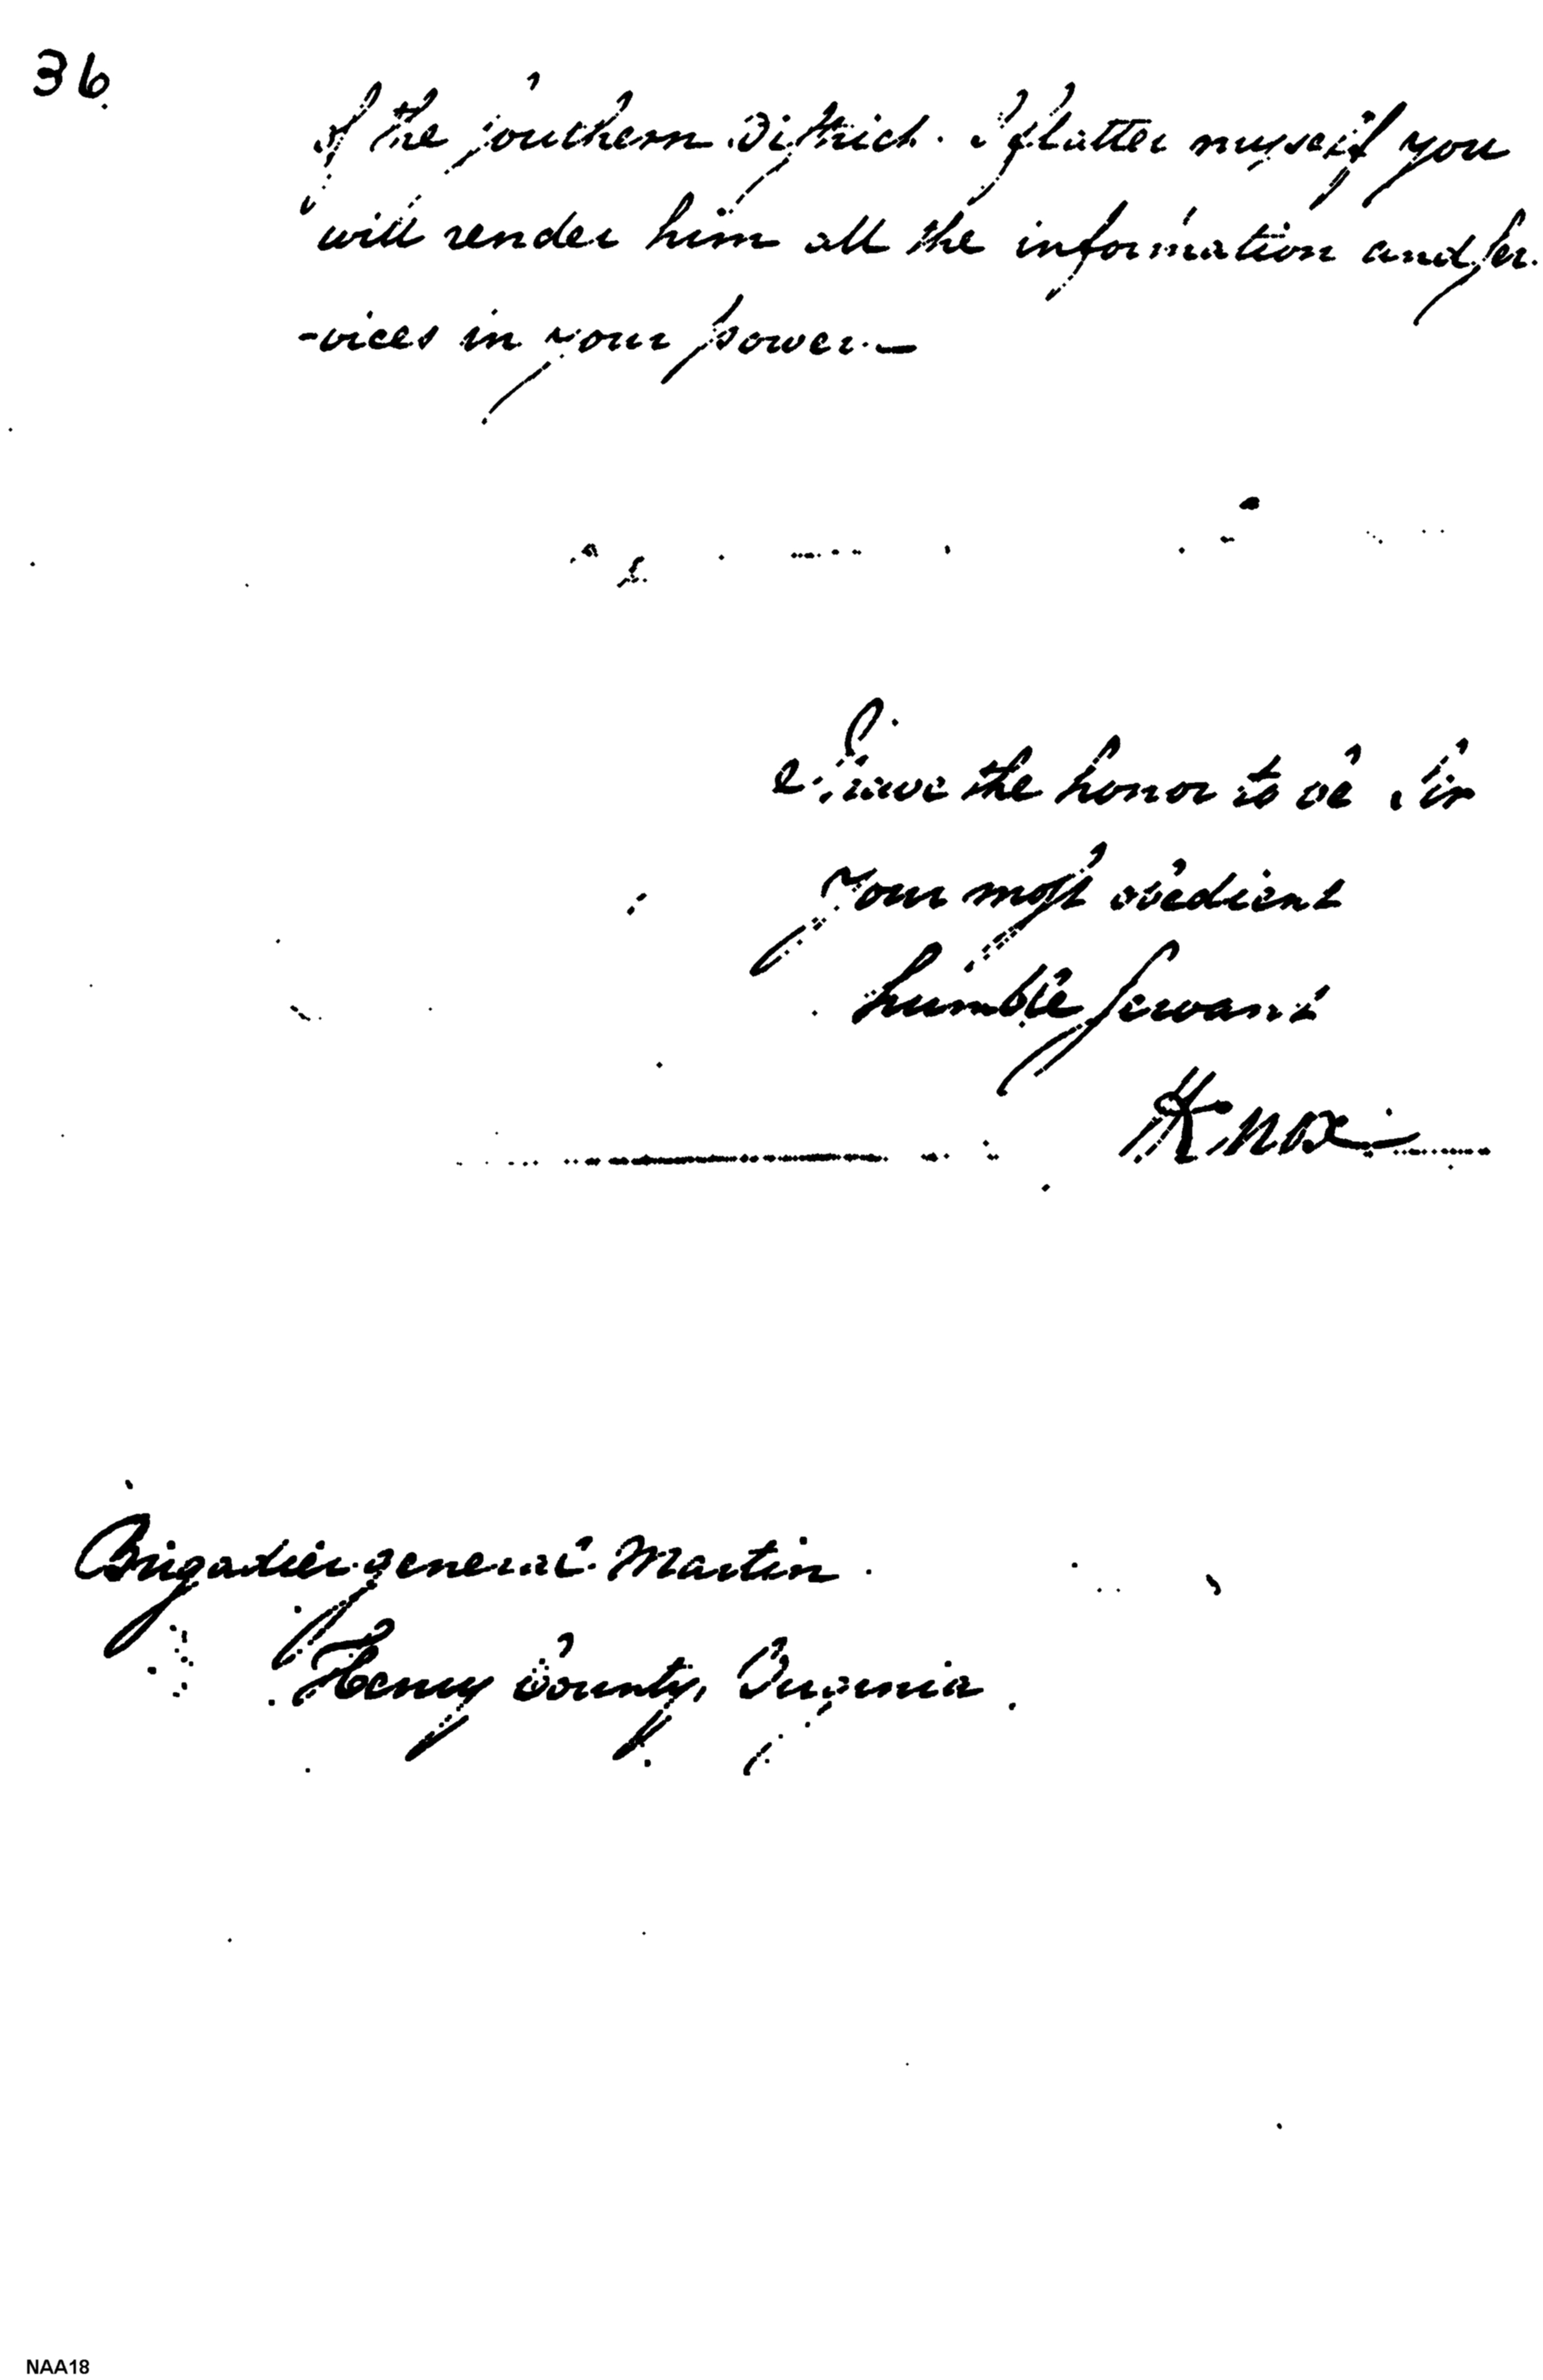 36
of the southern District. I flatter myself you
will render him all the information and ser-
-vices in your power.—
I have the honor to be Sir
your most obedient
humble servant
HKnox
Brigadier general Martin
Henry County, Virginia.
NAA18